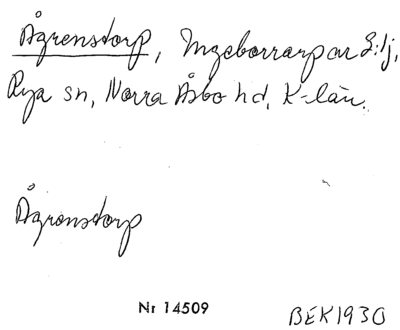 Ågrenstorp, Ingeborrarp ar 2:1j,
Rya sn, Norra Åsbo hd, K-län.
Ågrenstorp
Nr 14509
BEK1930